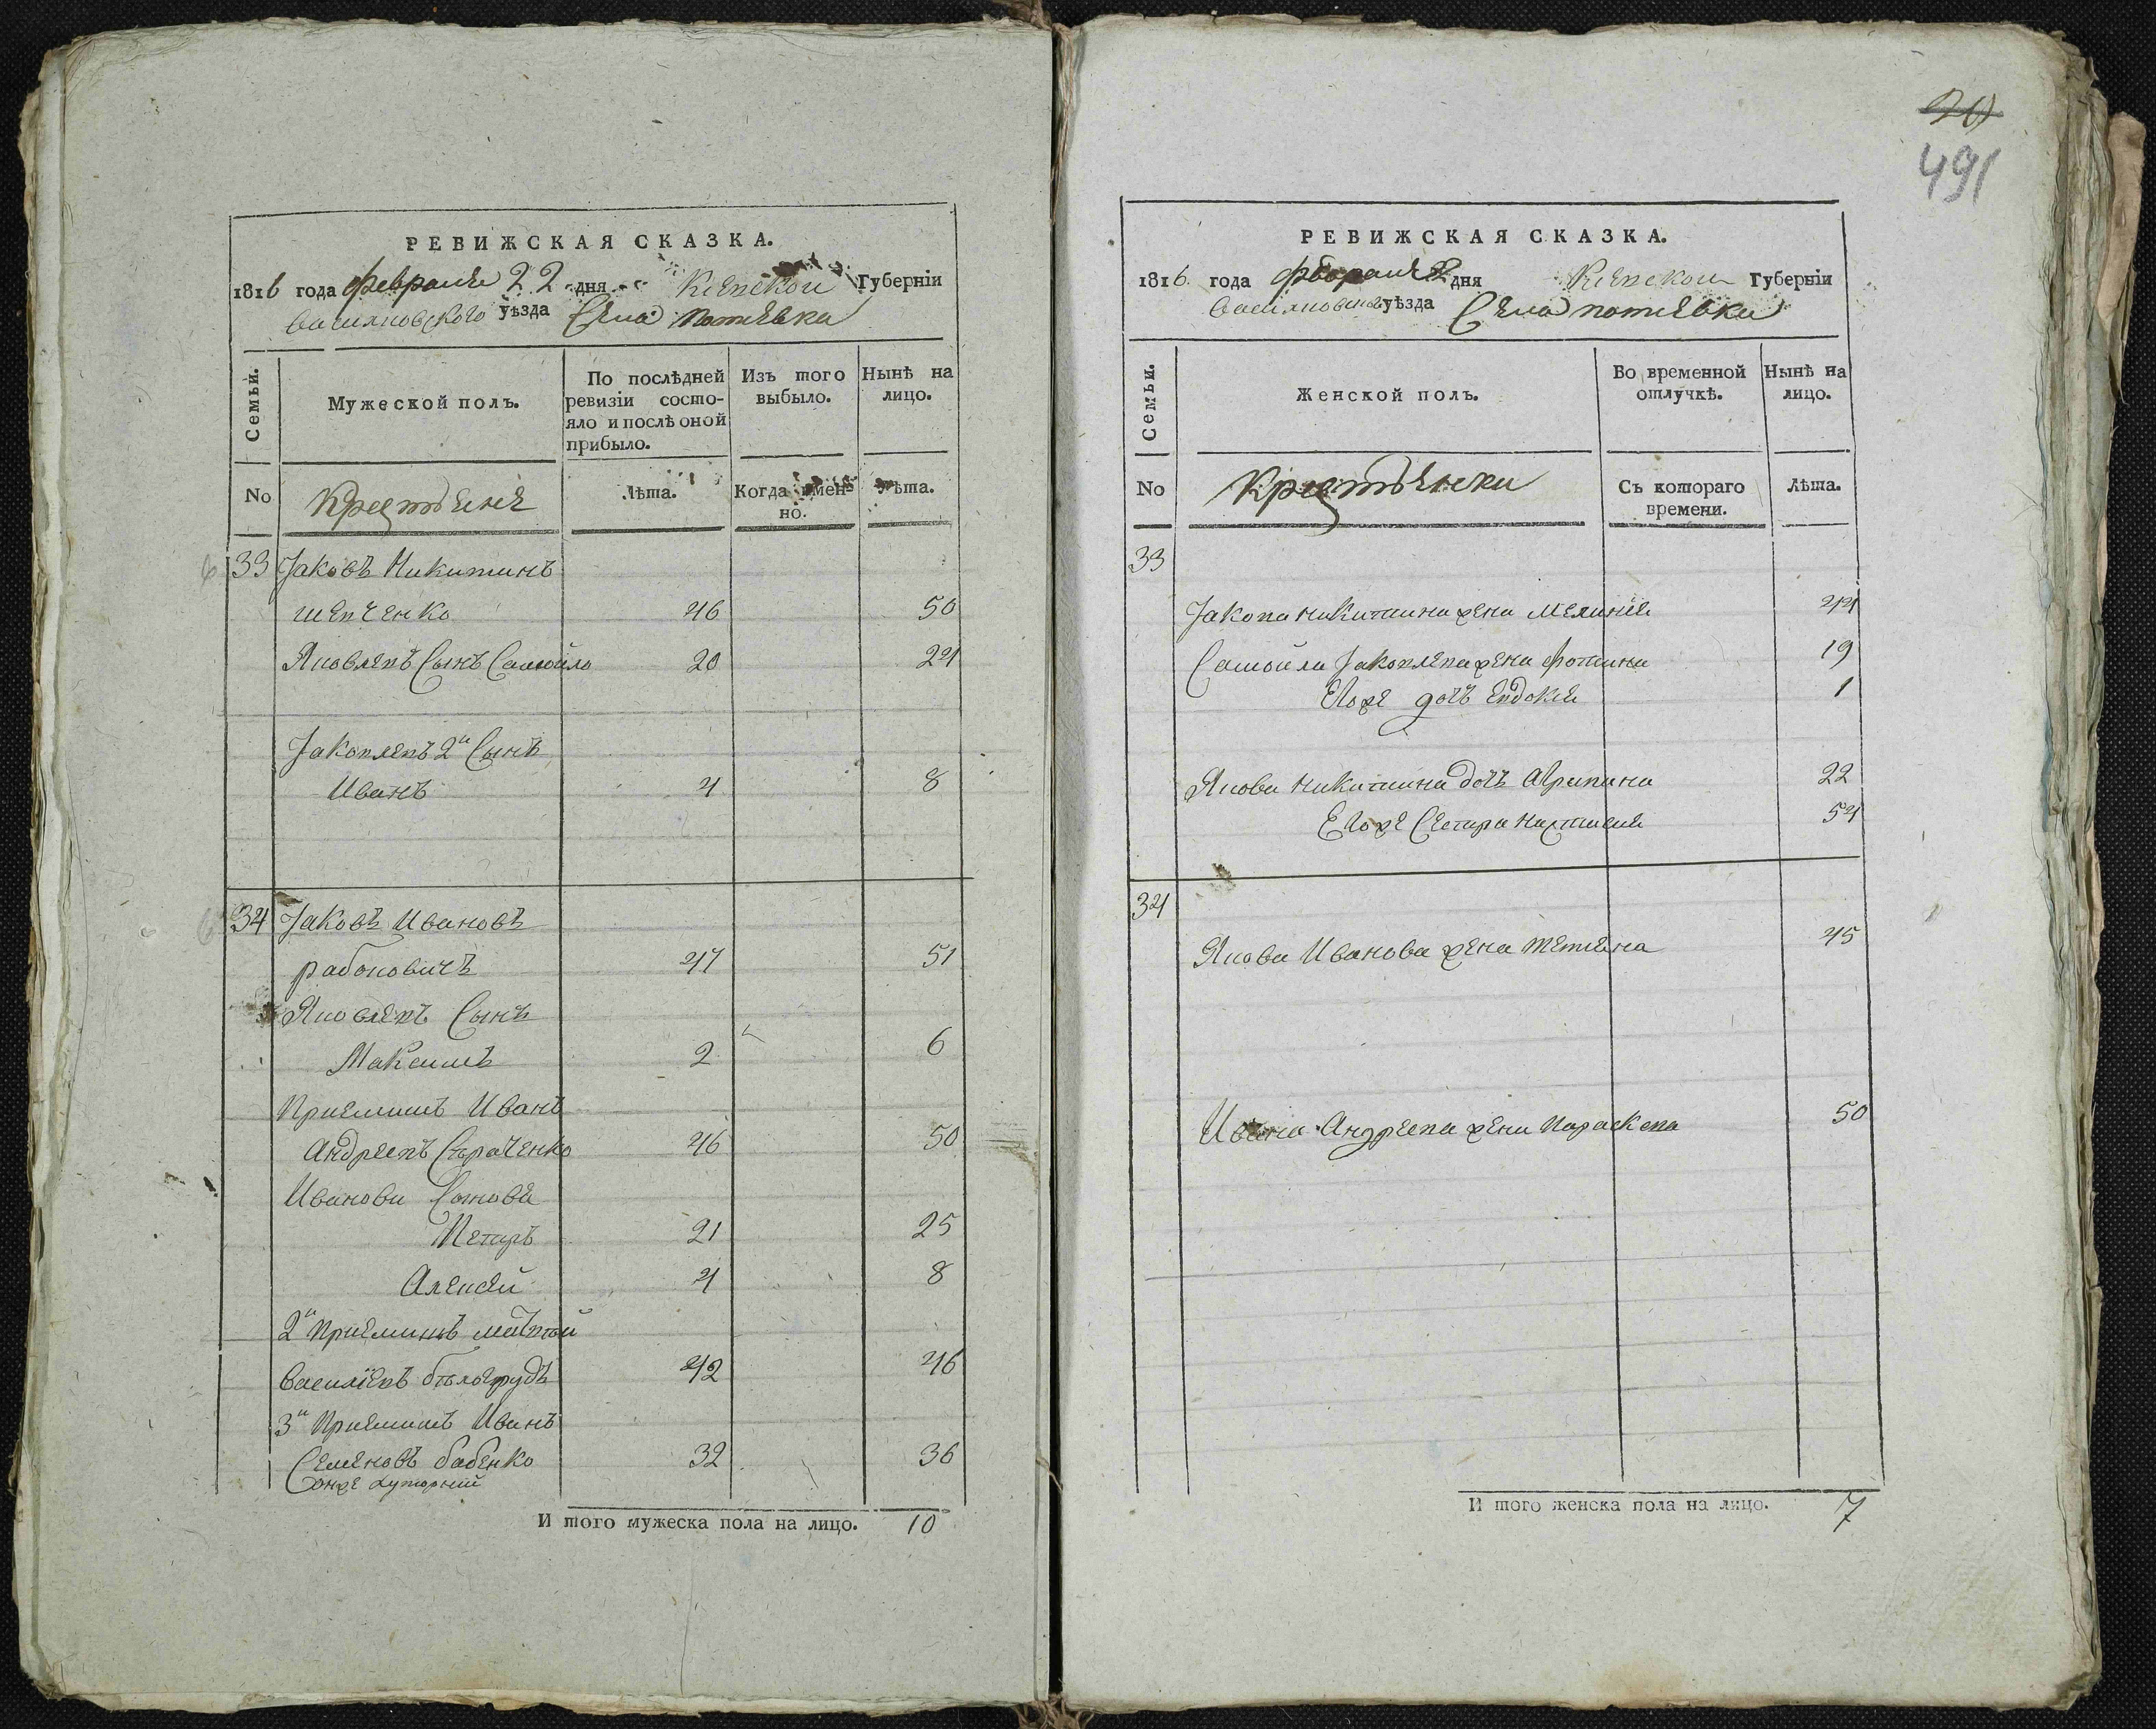 РЕВИЖСКАЯ СКАЗКА.
1816 года февраля 22 дня Киевской Губерніи
василковского уѣзда Села потиевка
Семьи.
Мужеской полъ.
По послѣдней ревизіи состояло и послѣ оной прибыло.
Изъ того выбыло.
Нынѣ на лицо.
No
Крестяне
Лѣта.
Когда именно.
Лѣта.
33 Яковъ Никитинъ
шевченко 46 50
Яковлевъ Сынъ Самойло 20 24
Яковлевъ 2й Сынъ
Иванъ 4 8
34 Яковъ Ивановъ
рабоковичъ 47 51
Яковлевъ Сынъ
Максимъ 2 6
Приемишъ Иванъ
Андреевъ 46 50
Иванови Синовя
Петръ 21 25
Алексей 4 8
2й Приемишъ матвей
василіевъ белогрудъ 42 46
3й Приемишъ Иванъ
Семеновъ бабенко 32 36
И того мужеска пола на лицо. 10
20
491
РЕВИЖСКАЯ СКАЗКА.
1816 года февраля 22 дня Киевской Губерніи
василковского уѣзда Села потиевки
Семьи.
Женской полъ.
Во временной отлучкѣ.
Нынѣ на лицо.
No
Крестянки
Съ котораго времени.
Лѣта.
33
Якова никитина жена Мелания 44
Самойла Яковлева жена фотина 19
Егоже дочъ Евдокия 1
Якова никитина дочъ агрипина 22
Егоже Сестра настасия 54
34
Якова Иванова жена тетяна 45
Ивана Андреева жена параскева 50
И того женска пола на лицо. 7